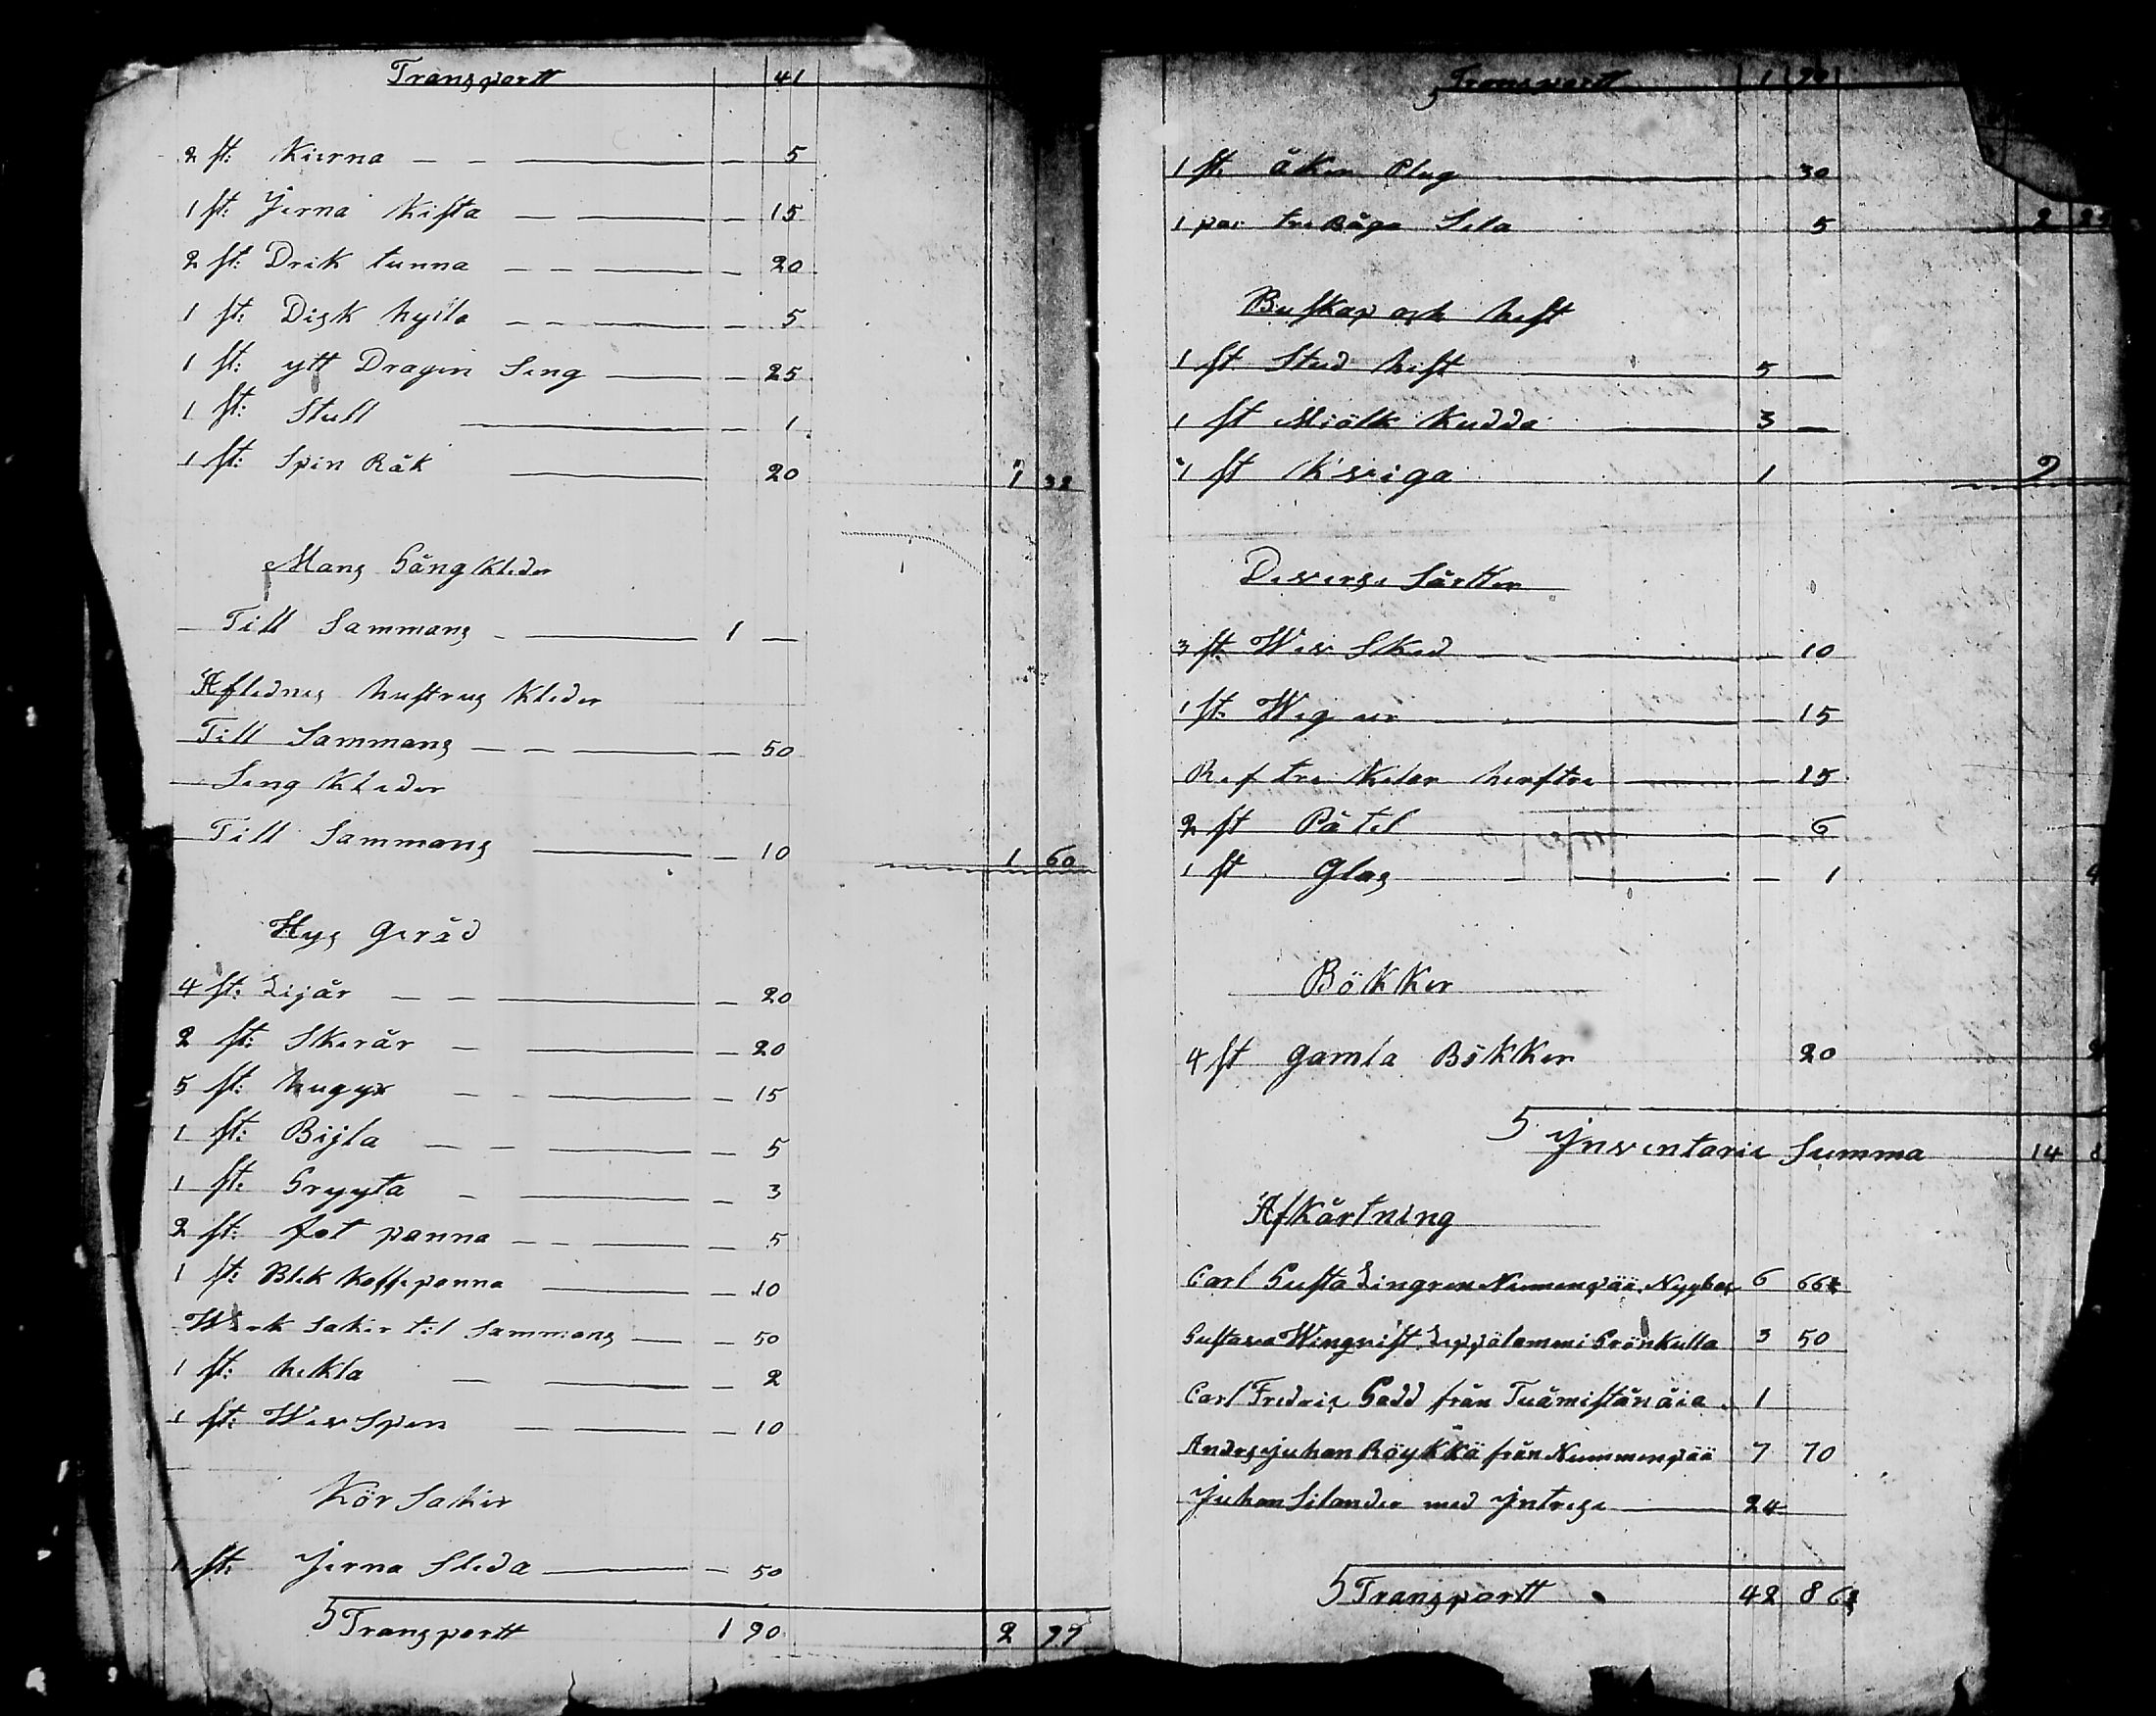 Transportt 41
2 st: Kierna — — — 5
1 st: Jerna Kista — — — 15
2 st: Drik tunna — — — 20
1 st: Disk hylla — — — 5
1 st: ytt Dragen Seng — — 25
1 st: Stull — — 1
1 st: Spin Råk — 20 1 32
Mans Gång Kleder
Till Sammans — — 1 —
Aflednes hustrus Kleder
Till Sammans — — — 50
Seng Kleder
Till Sammans — — 10 1 60
Hys Geråd
4 st: Lijår — — — 20
2 st: Skerår — — — 20
5 st: huggyx — — — 15
1 st: Bijla — — — 5
1 st: Gryyta — — — 3
2 st: fot panna — — — 5
1 st: Blek Koffepanna — — 10
Werk Saker til Sammans — — 50
1 st: hekla — — — 2
1 st: Wev Spen — — — 10
Kör Saker
1 st: Jerna Sleda — — 50
Transportt 1 90 2 99
Transportt 1 90
1 st: åker Plug — 30
1 par tre Båga Sela 5 2 25
Buskap och hest
1 st Stud hest — 5 —
1 st Miölk Kudda — 3 —
1 st Kviga 1 9
Deverse Sårtter
3 st Wev Sked — — 10
1 st: Weg ur — — 15
Ref tre Kelar herftre — — 15
2 st Påtel — — 6
1 st Glas — — 1 4
Bökker
4 st gamla Bökker 20
Ynventarie Summa 14 8
Afkårtning
Carl Gusta Lingren Nummenpää Nygbes 6 66
Gustava Wingvist Leppälammi Grönkulla 3 50
Carl Fredric Gadd från Tuåmistånåia 1
Andes Juhan Röykkä från Nummenpää 7 70
Juhan Silander med Yntrese — 24
Transportt 42 86